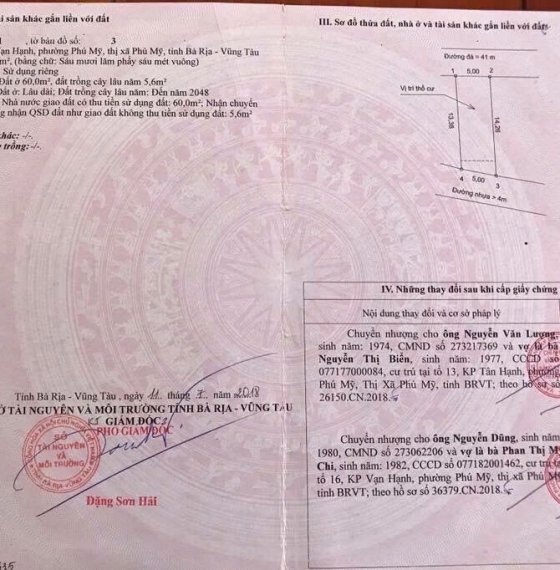 ài sản khác gắn liền với đất
, tờ bản đồ số: 3
Vạn Hạnh, phường Phú Mỹ, thị xã Phú Mỹ, tỉnh Bà Rịa - Vũng Tàu
m², (bằng chữ: Sáu mươi lăm phẩy sáu mét vuông)
Sử dụng riêng
Đất ở 60,0m², đất trồng cây lâu năm 5,6m²
đất ở: Lâu dài; Đất trồng cây lâu năm: Đến năm 2048
Nhà nước giao đất có thu tiền sử dụng đất: 60,0m²; Nhận chuyển
ng nhận QSD đất như giao đất không thu tiền sử dụng đất: 5,6m²
khác: -/-.
trồng:-/-.
Tỉnh Bà Rịa - Vũng Tàu, ngày 11 tháng 7. năm 2018
Ở TÀI NGUYÊN VÀ MÔI TRƯỜNG TỈNH BÀ RỊA - VŨNG TÀU
GIÁM ĐỐC
PHÓ GIÁM ĐỐC
SỞ
TÀI NGUYÊN
VÀ
MÔI TRƯỜNG
Đặng Sơn Hải
III. Sơ đồ thửa đất, nhà ở và tài sản khác gắn liền với đất
Đường đá = 41 m
1 5,00 2
Vị trí thổ cư
13,38
14,26
4 5,00 3
Đường nhựa > 4m
IV. Những thay đổi sau khi cấp giấy chứng
Nội dung thay đổi và cơ sở pháp lý
Chuyển nhượng cho ông Nguyễn Văn Lượng,
sinh năm: 1974, CMND số 273217369 và vợ là bà
Nguyễn Thị Biên, sinh năm: 1977, CCCD số
077177000084, cư trú tại tổ 13, KP Tân Hạnh, phường
Phú Mỹ, Thị Xã Phú Mỹ, tỉnh BRVT; theo hồ sơ số
26150.CN.2018.
Chuyển nhượng cho ông Nguyễn Dũng, sinh năm
1980, CMND số 273062206 và vợ là bà Phan Thị M
Chi, sinh năm: 1982, CCCD số 077182001462, cư trú
tổ 16, KP Vạn Hạnh, phường Phú Mỹ, thị xã Phú Mỹ
tỉnh BRVT; theo hồ sơ số 36379.CN.2018.